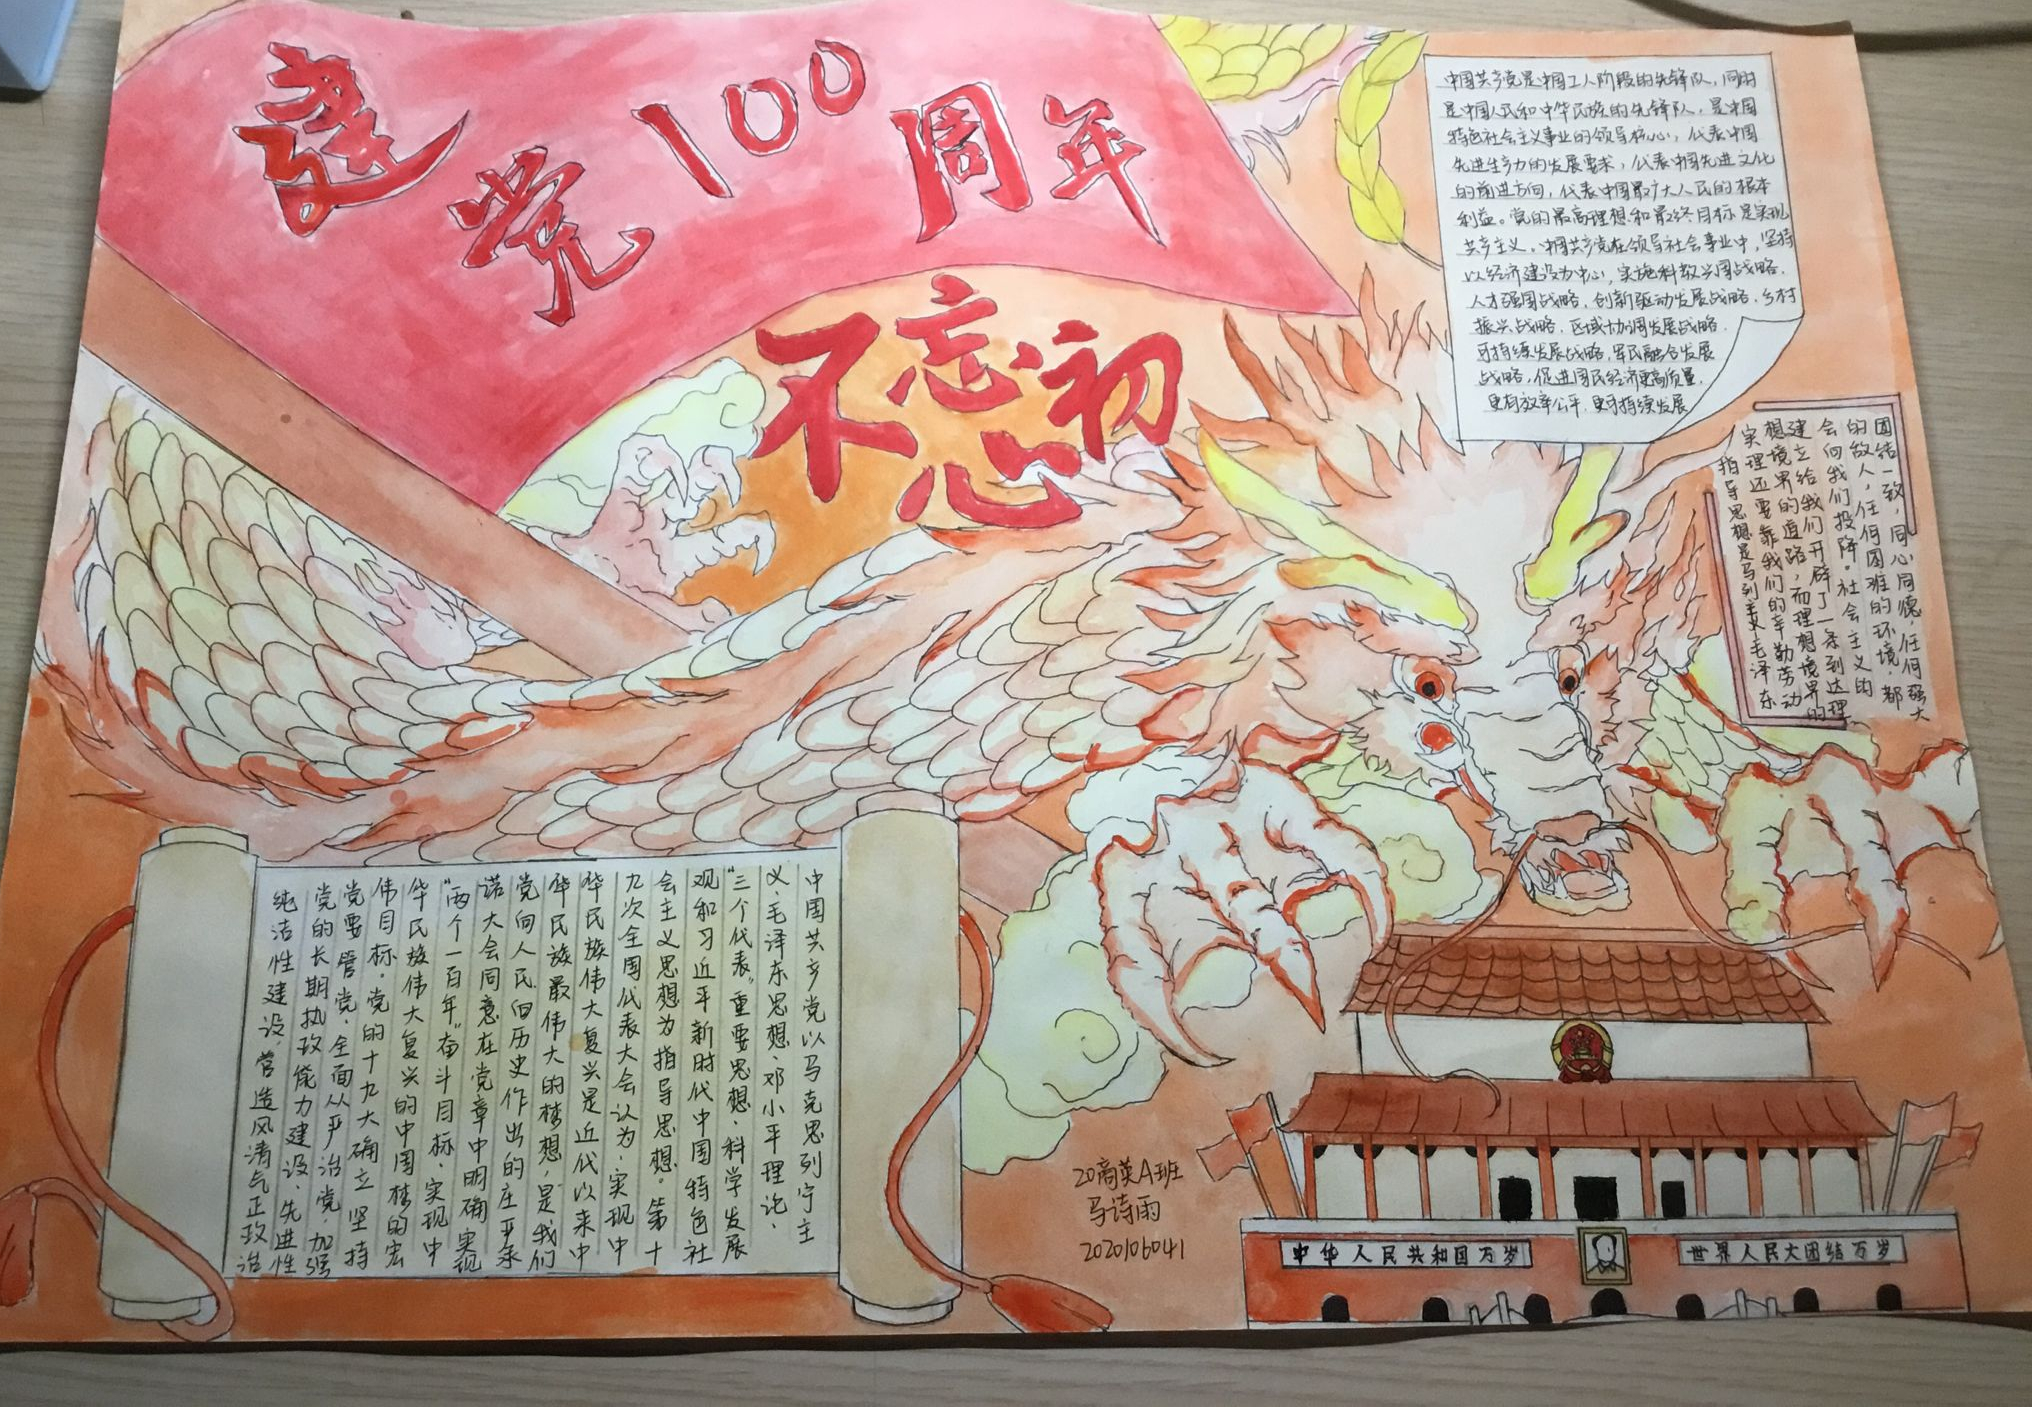 建党100周年
不忘初心
中国共产党是中国工人阶段的先锋队，同时
是中国人民和中华民族的先锋队，是中国
特色社会主义事业的领导核心，代表中国
先进生产力的发展要求，代表中国先进文化
的前进方向，代表中国最广大人民的根本
利益。党的最高理想和最终目标是实现
共产主义。中国共产党在领导社会事业中，坚持
以经济建设为中心，实施科教兴国战略、
人才强国战略，创新驱动发展战略、乡村
振兴战略、区域协调发展战略、
可持续发展战略，军民融合发展
战略，促进国民经济更高质量、
更有效率公平、更可持续发展
团结一致，同心同德，任何强大
的敌人，任何困难的环境，都
会向我们投降。社会主义的
建立给我们开辟了一条到达理
想境界的道路，而理想境界的
实理还要靠我们的辛勤劳动
指导思想是马列主义毛泽东
中国共产党以马克思列宁主
义、毛泽东思想、邓小平理论、
“三个代表”重要思想、科学发展
观和习近平新时代中国特色社
会主义思想为指导思想。第十
九次全国代表大会认为，实现中
华民族伟大复兴是近代以来中
华民族最伟大的梦想，是我们
党向人民、向历史作出的庄严承
诺大会同意在党章中明确实现
“两个一百年”奋斗目标、实现中
华民族伟大复兴的中国梦的宏
伟目标。党的十九大确立坚持
党要管党、全面从严治党，加强
党的长期执政能力建设、先进性
纯洁性建设，营造风清气正政治
20商英A班
马诗雨
2020106041
中华人民共和国万岁
世界人民大团结万岁